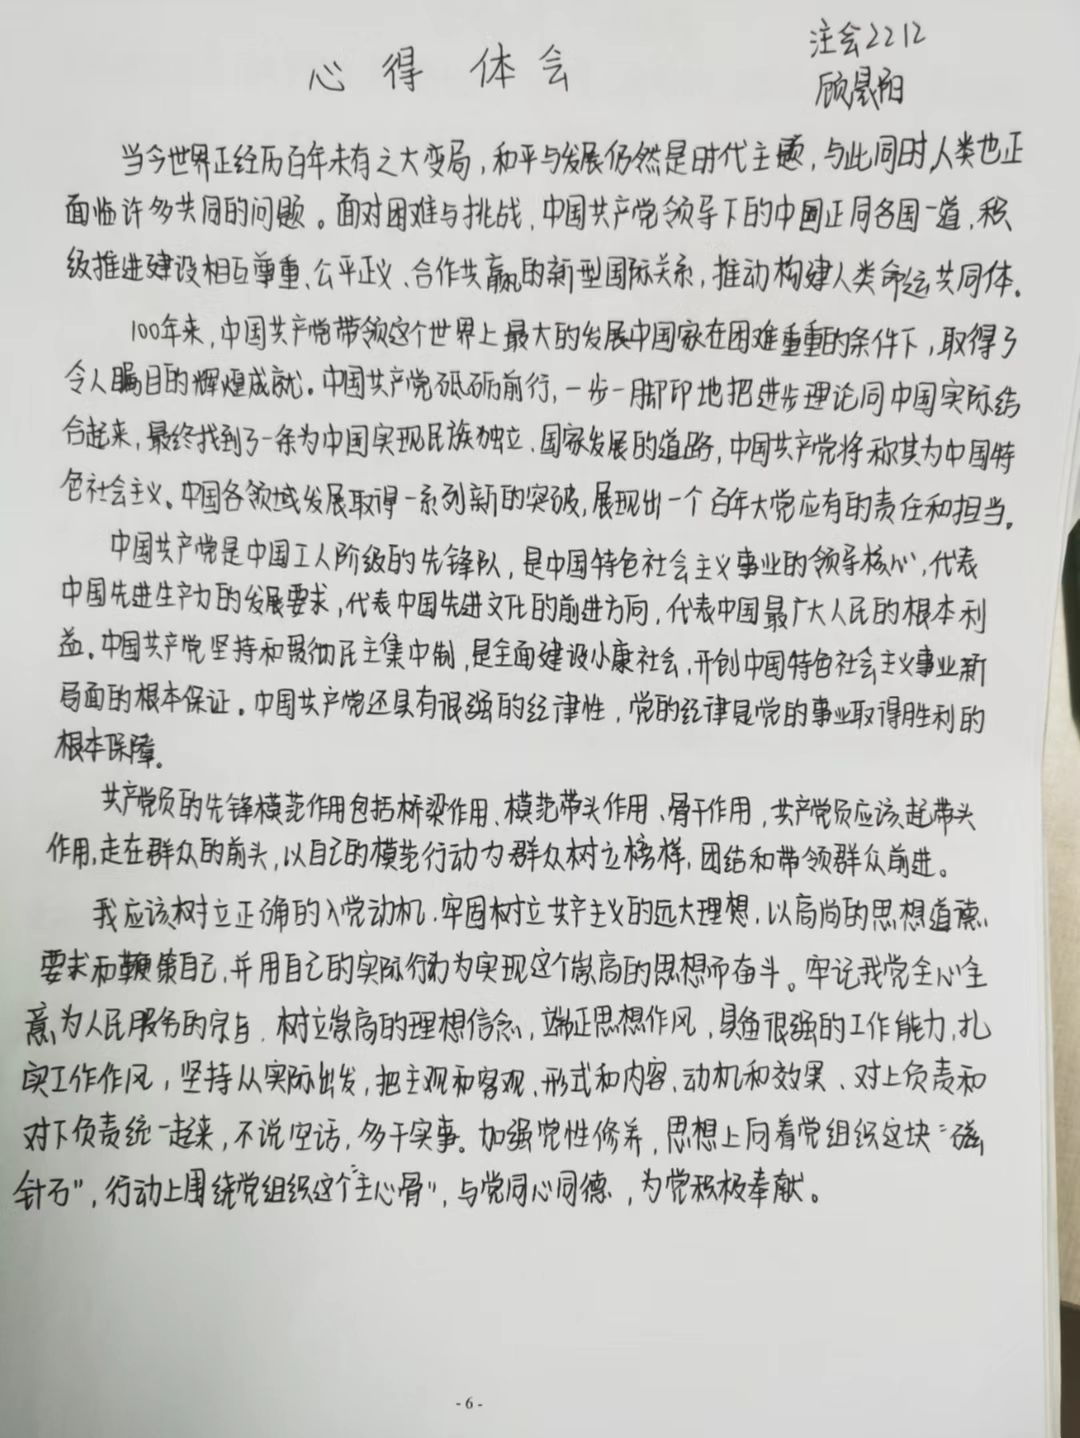 注会2212
顾晟阳
心得 体会
当今世界正经历百年未有之大变局，和平与发展仍然是时代主题，与此同时人类也正
面临许多共同的问题。面对困难与挑战，中国共产党领导下的中国正同各国一道，积
级推进建设相互尊重、公平正义、合作共赢的新型国际关系，推动构建人类命运共同体。
100年来，中国共产党带领这个世界上最大的发展中国家在困难重重的条件下，取得了
令人瞩目的辉煌成就。中国共产党砥砺前行，一步一脚印地把进步理论同中国实际结
合起来，最终找到了一条为中国实现民族独立、国家发展的道路，中国共产党将称其为中国特
色社会主义。中国各领域发展取得一系列新的突破，展现出一个百年大党应有的责任和担当。
中国共产党是中国工人阶级的先锋队，是中国特色社会主义事业的领导核心，代表
中国先进生产力的发展要求，代表中国先进文化的前进方向，代表中国最广大人民的根本利
益。中国共产党坚持和贯彻民主集中制，是全面建设小康社会，开创中国特色社会主义事业新
局面的根本保证。中国共产党还具有很强的纪律性，党的纪律是党的事业取得胜利的
根本保障。
共产党员的先锋模范作用包括桥梁作用、模范带头作用、骨干作用，共产党员应该起带头
作用，走在群众的前头，以自己的模范行动为群众树立榜样，团结和带领群众前进。
我应该树立正确的入党动机，牢固树立共产主义的远大理想，以高尚的思想道德
要求和鞭策自己，并用自己的实际行动为实现这个崇高的思想而奋斗。牢记我党全心全
意为人民服务的宗旨，树立崇高的理想信念，端正思想作风，具备很强的工作能力，扎
实工作作风，坚持从实际出发，把主观和客观、形式和内容、动机和效果、对上负责和
对下负责统一起来，不说空话，多干实事。加强党性修养，思想上向着党组织这块“磁
针石”，行动上围绕党组织这个“主心骨”，与党同心同德，为党积极奉献。
-6-